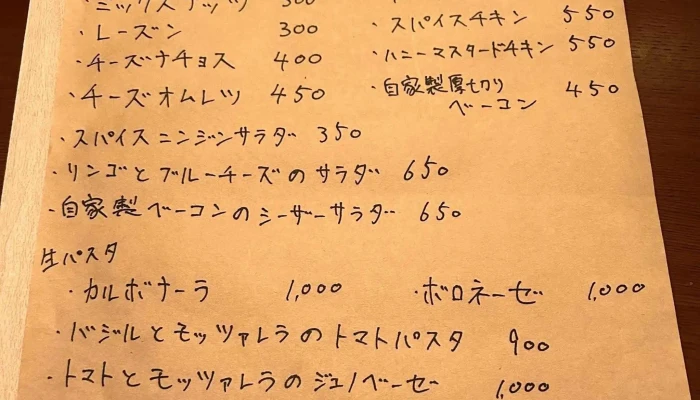 ・ミックスナッツ 500
・スパイスチキン 550
・レーズン 300
・ハニーマスタードチキン 550
・チーズナチョス 400
・自家製厚切り
ベーコン 450
・チーズオムレツ 450
・スパイスニンジンサラダ 350
・リンゴとブルーチーズのサラダ 650
・自家製ベーコンのシーザーサラダ 650
生パスタ
・カルボナーラ 1,000 ・ボロネーゼ 1,000
・バジルとモッツァレラのトマトパスタ 900
・トマトとモッツァレラのジェノベーゼ 1,000